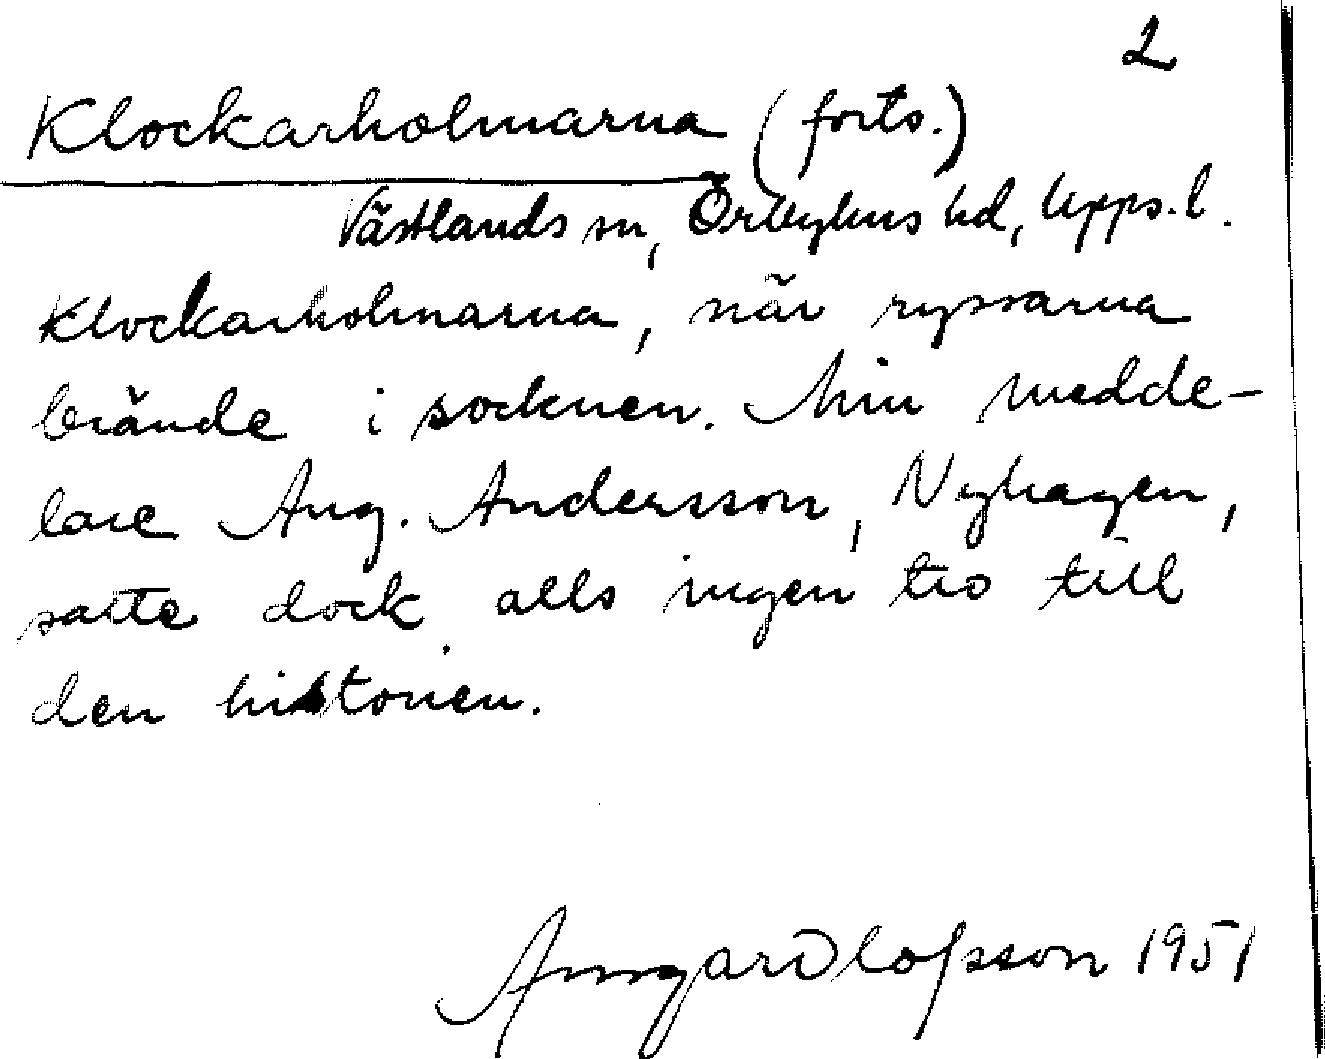 2
Klockarholmarna (forts.)
Västlands sn, Örbyhus hd, Upps. l.
Klockarholmarna, när ryssarna
brände i socknen. Min medde-
lare Aug. Andersson, Nyhagen,
satte dock alls ingen tro till
den historien.
Olofsson 1951